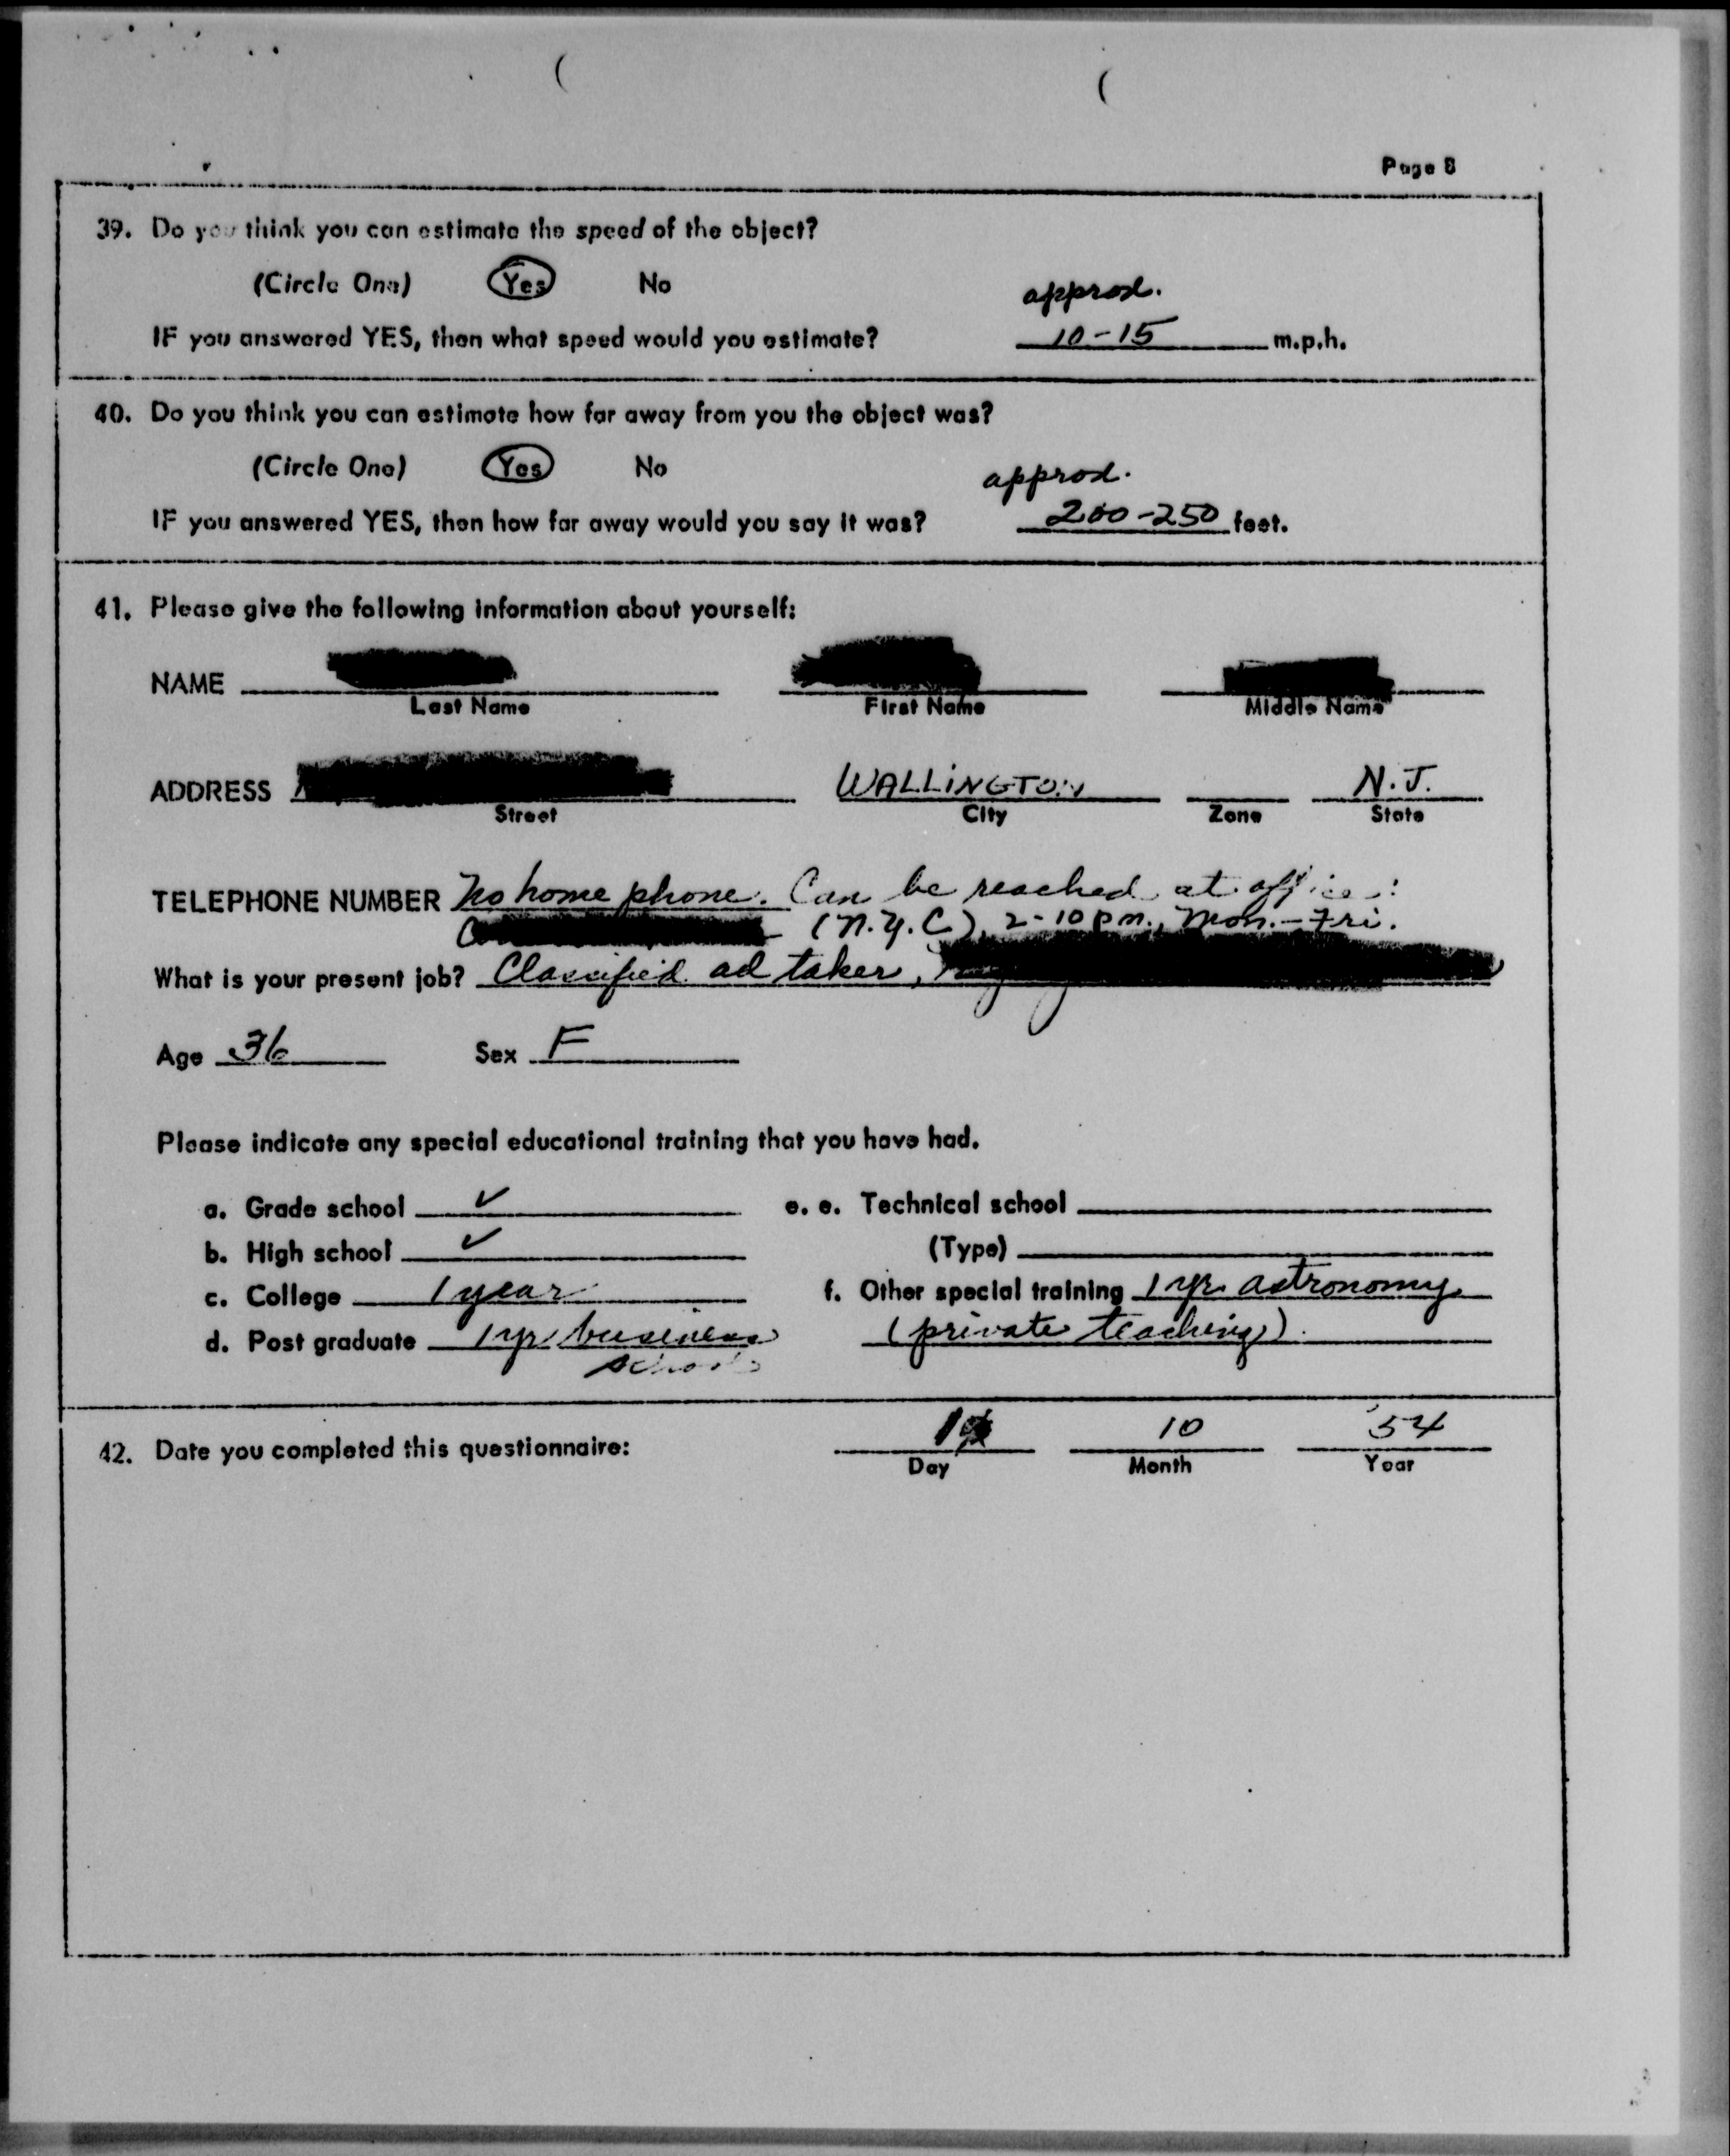 Page 8
39. Do you think you can estimate the speed of the object?
(Circle One) Yes No
approx.
IF you answered YES, then what speed would you estimate? 10-15 m.p.h.
40. Do you think you can estimate how far away from you the object was?
(Circle One) Yes No
approx.
IF you answered YES, then how far away would you say it was? 200-250 feet.
41. Please give the following information about yourself:
NAME
Last Name First Name Middle Name
ADDRESS WALLINGTON N.J.
Street City Zone State
TELEPHONE NUMBER No home phone. Can be reached at office:
(N.Y.C.), 2-10 p.m., Mon.-Fri.
What is your present job? Classified ad taker,
Age 36 Sex F
Please indicate any special educational training that you have had.
a. Grade school ✓ e. e. Technical school
b. High school ✓ (Type)
c. College 1 year f. Other special training 1 yr. astronomy
d. Post graduate 1 yr business (private teaching).
school
10 '54
42. Date you completed this questionnaire:
Day Month Year